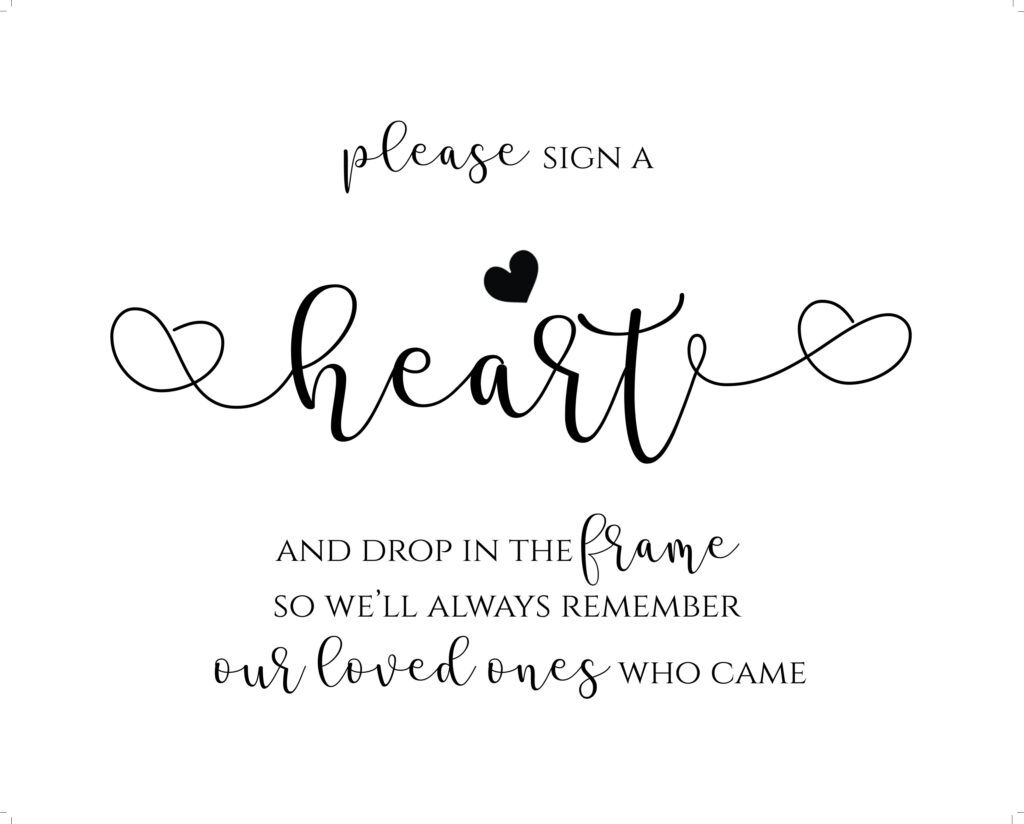 please SIGN A
heart
AND DROP IN THE frame
SO WE'LL ALWAYS REMEMBER
our loved ones WHO CAME